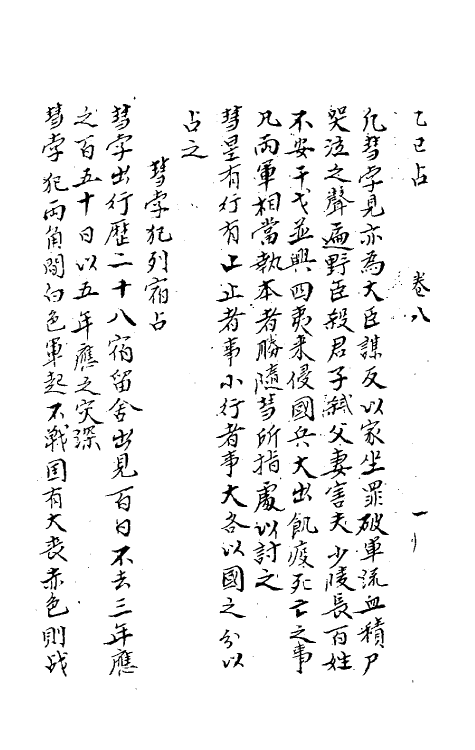 乙巳占　卷八　一
凡彗孛見亦為大臣謀反以家坐罪破軍流血積尸
哭泣之聲遍野臣殺君子弑父妻害夫少陵長百姓
不安干戈並興四夷来侵國兵大出飢疫死亡之事
凡兩軍相當執本者勝隨彗所指處以討之
彗星有行有止止者事小行者事大各以國之分以
占之
彗孛犯列宿占
彗孛出行歷二十八宿留舍出見百日不去三年應
之百五十日以五年應之灾深
彗孛犯兩角間白色軍起不戰国有大喪赤色則战